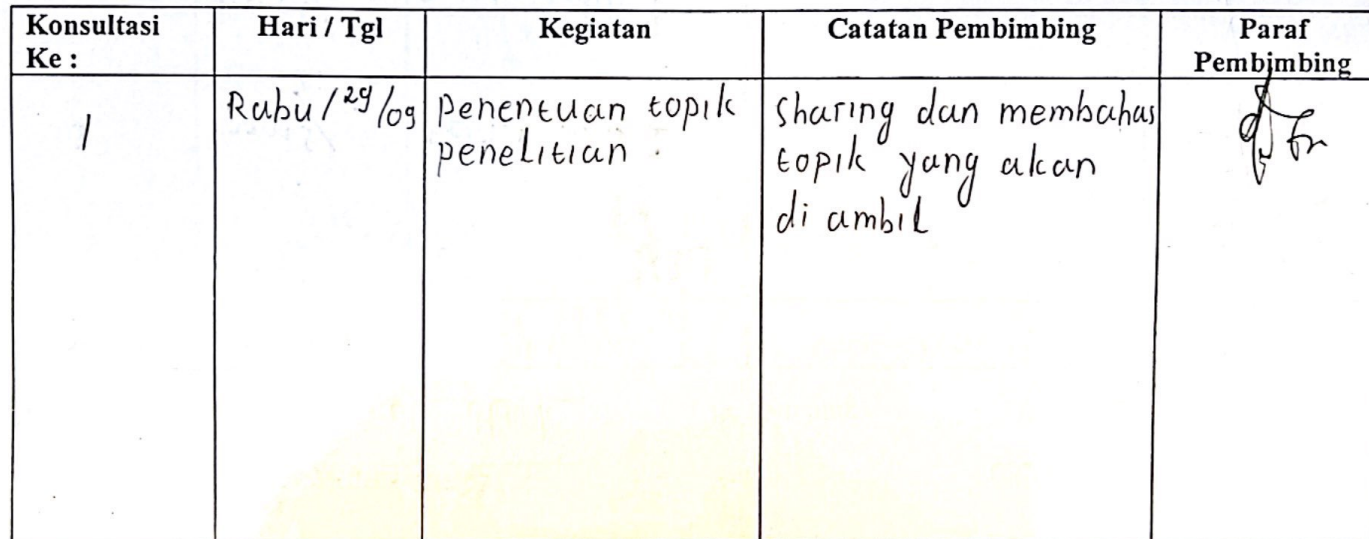 Konsultasi Ke :
Hari / Tgl
Kegiatan
Catatan Pembimbing
Paraf Pembimbing
1
Rabu / 29/09
Penentuan topik
penelitian .
Sharing dan membahas
topik yang akan
di ambil